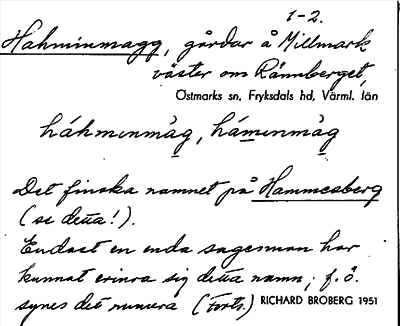 1-2.
Hahminmagg, gårdar å Millmark
väster om Rännberget,
Östmarks sn, Fryksdals hd, Värml. län
háhmınmàg, hámınmàg
Det finska namnet på Hammesberg
(se detta!).
Endast en enda sagesman har
kunnat erinra sig detta namn; f.ö.
synes det numera (Forts.) RICHARD BROBERG 1951